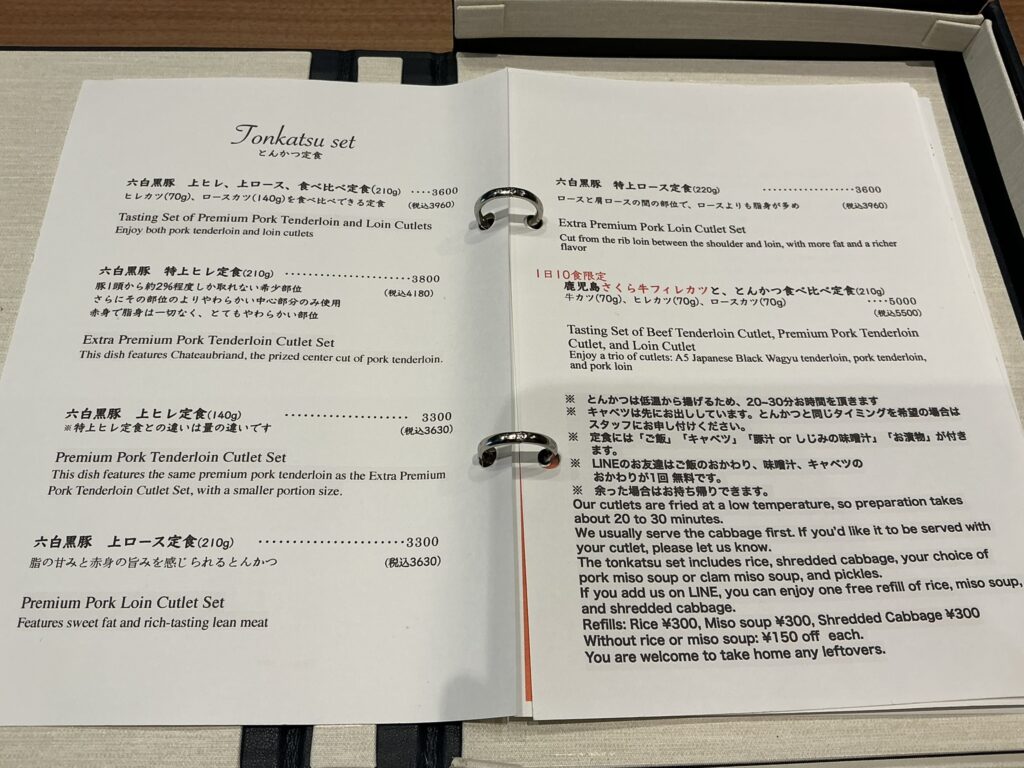 Tonkatsu set
とんかつ定食
六白黒豚 上ヒレ、上ロース、食べ比べ定食(210g) ････3600
ヒレカツ(70g)、ロースカツ(140g)を食べ比べできる定食 (税込3960)
Tasting Set of Premium Pork Tenderloin and Loin Cutlets
Enjoy both pork tenderloin and loin cutlets
六白黒豚 特上ヒレ定食(210g) ･･････････････････････3800
豚1頭から約2%程度しか取れない希少部位 (税込4180)
さらにその部位のよりやわらかい中心部分のみ使用
赤身で脂身は一切なく、とてもやわらかい部位
Extra Premium Pork Tenderloin Cutlet Set
This dish features Chateaubriand, the prized center cut of pork tenderloin.
六白黒豚 上ヒレ定食(140g) ･････････････････････ 3300
※特上ヒレ定食との違いは量の違いです (税込3630)
Premium Pork Tenderloin Cutlet Set
This dish features the same premium pork tenderloin as the Extra Premium
Pork Tenderloin Cutlet Set, with a smaller portion size.
六白黒豚 上ロース定食(210g) ････････････････････････3300
脂の甘みと赤身の旨みを感じられるとんかつ (税込3630)
Premium Pork Loin Cutlet Set
Features sweet fat and rich-tasting lean meat
六白黒豚 特上ロース定食(220g) ･････････････････････3600
ロースと肩ロースの間の部位で、ロースよりも脂身が多め (税込3960)
Extra Premium Pork Loin Cutlet Set
Cut from the rib loin between the shoulder and loin, with more fat and a richer
flavor
1日10食限定
鹿児島さくら牛フィレカツと、とんかつ食べ比べ定食(210g)
牛カツ(70g)、ヒレカツ(70g)、ロースカツ(70g) ････5000
(税込5500)
Tasting Set of Beef Tenderloin Cutlet, Premium Pork Tenderloin
Cutlet, and Loin Cutlet
Enjoy a trio of cutlets: A5 Japanese Black Wagyu tenderloin, pork tenderloin,
and pork loin
※ とんかつは低温から揚げるため、20~30分お時間を頂きます
※ キャベツは先にお出ししています。とんかつと同じタイミングを希望の場合は
スタッフにお申し付けください。
※ 定食には「ご飯」「キャベツ」「豚汁 or しじみの味噌汁」「お漬物」が付き
ます。
※ LINEのお友達はご飯のおかわり、味噌汁、キャベツの
おかわりが1回 無料です。
※ 余った場合はお持ち帰りできます。
Our cutlets are fried at a low temperature, so preparation takes
about 20 to 30 minutes.
We usually serve the cabbage first. If you'd like it to be served with
your cutlet, please let us know.
The tonkatsu set includes rice, shredded cabbage, your choice of
pork miso soup or clam miso soup, and pickles.
If you add us on LINE, you can enjoy one free refill of rice, miso soup,
and shredded cabbage.
Refills: Rice ¥300, Miso soup ¥300, Shredded Cabbage ¥300
Without rice or miso soup: ¥150 off each.
You are welcome to take home any leftovers.